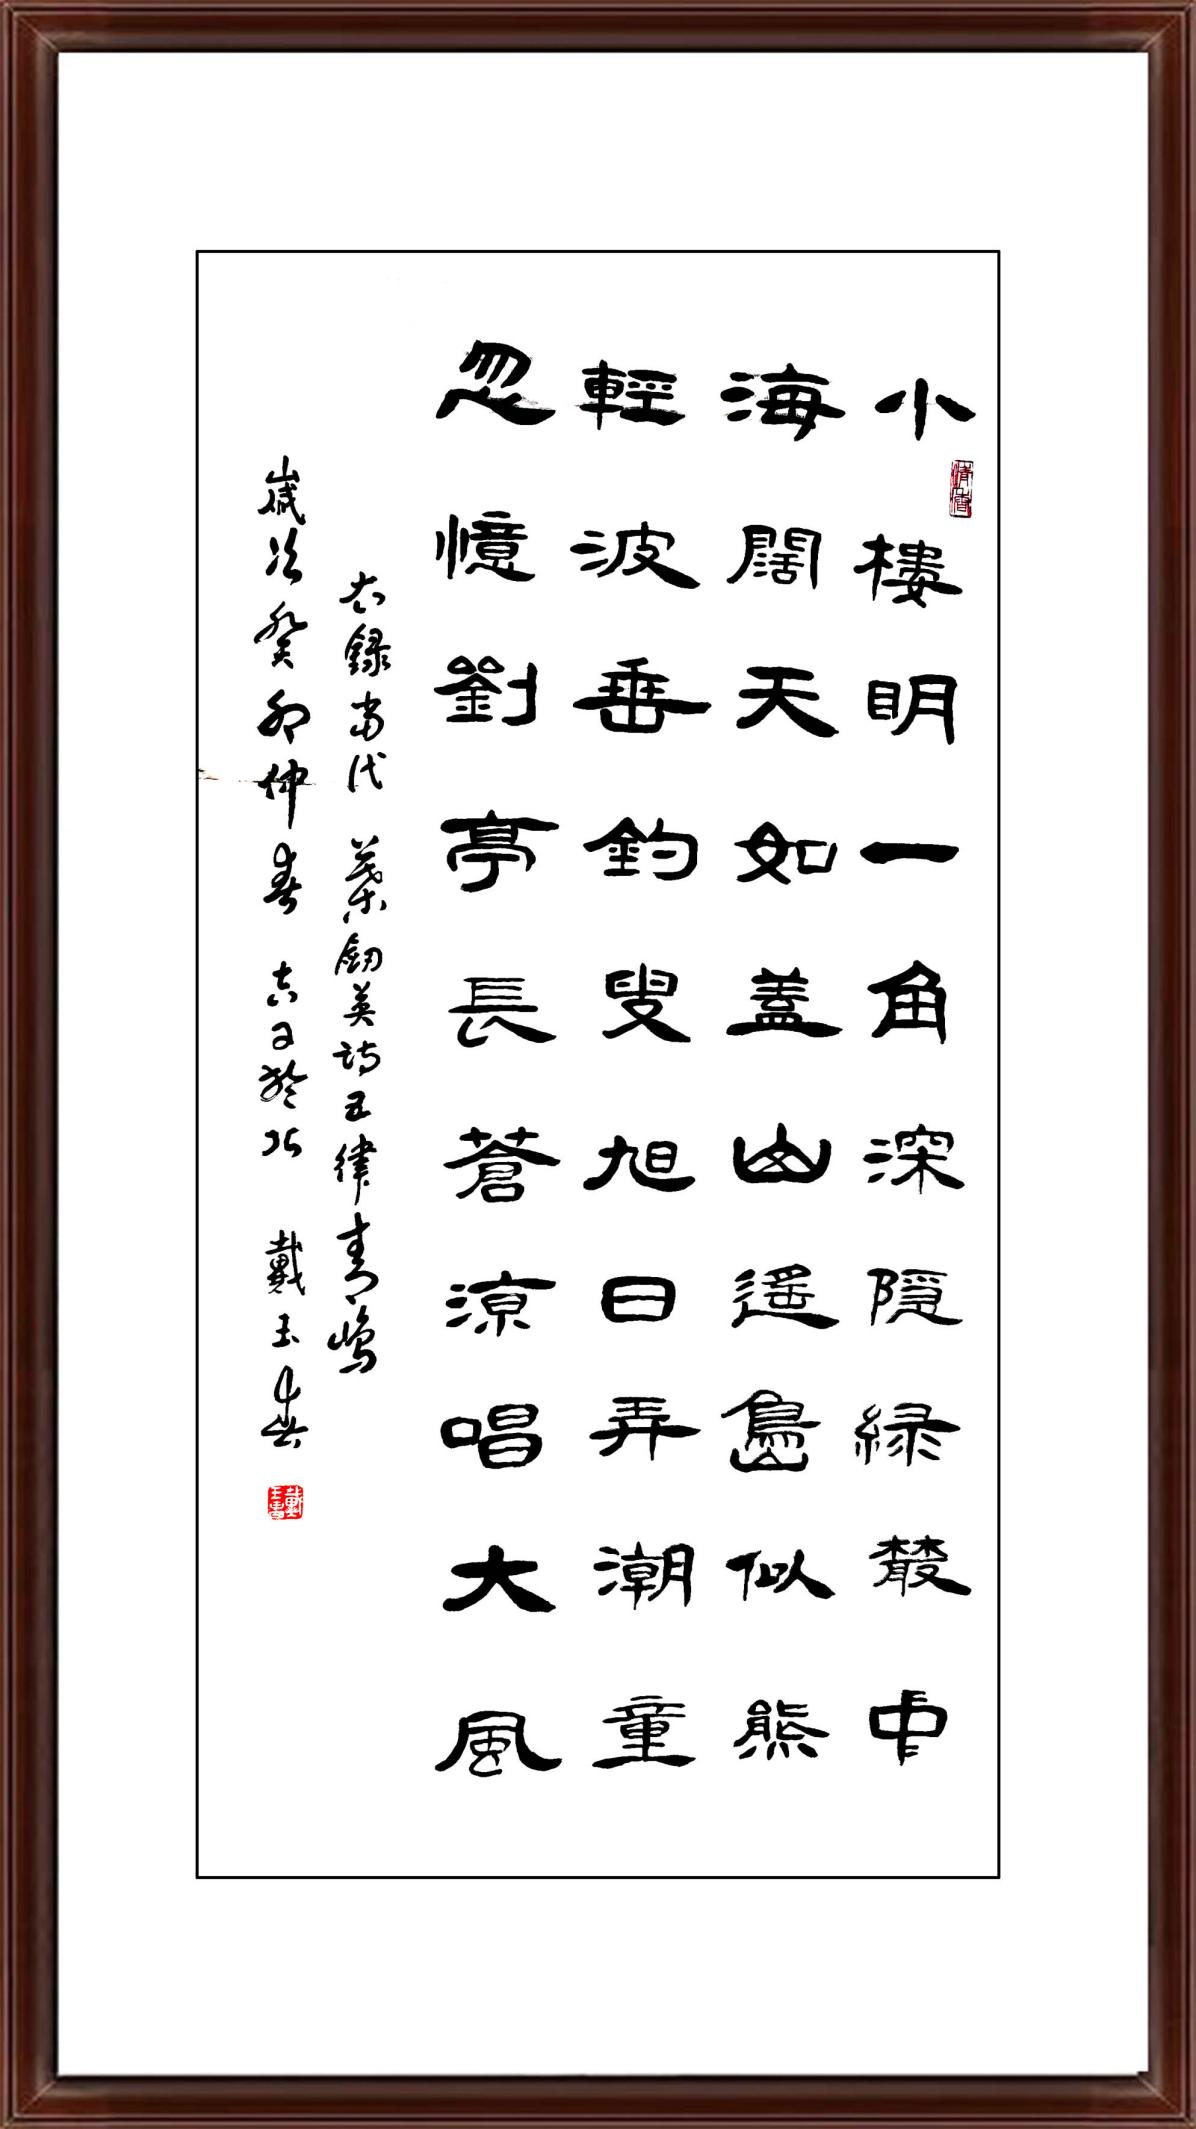 小樓明一角深隱緑叢中
海闊天如蓋山遥島似熊
輕波垂釣叟旭日弄潮童
忽憶劉亭長蒼凉唱大風
右録当代葉劍英詩五律青島
歲次癸卯仲春吉日於北 戴玉書